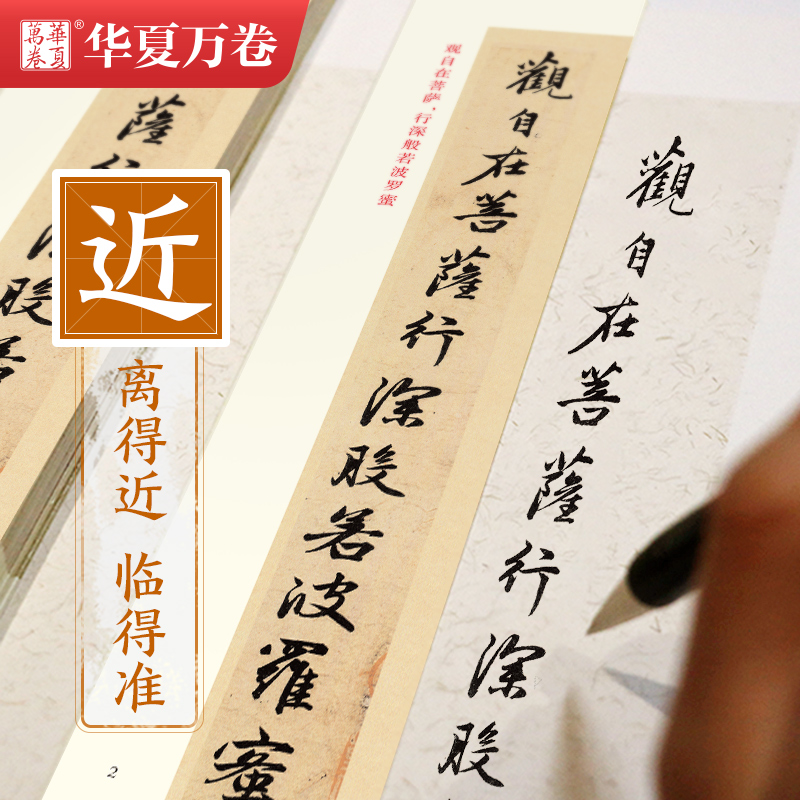 華夏
萬卷
®
华夏万卷
近
离得近 临得准
观自在菩萨，行深般若波罗蜜
觀自在菩薩行深般若波羅蜜
觀自在菩薩行深般
薩
深般若
2